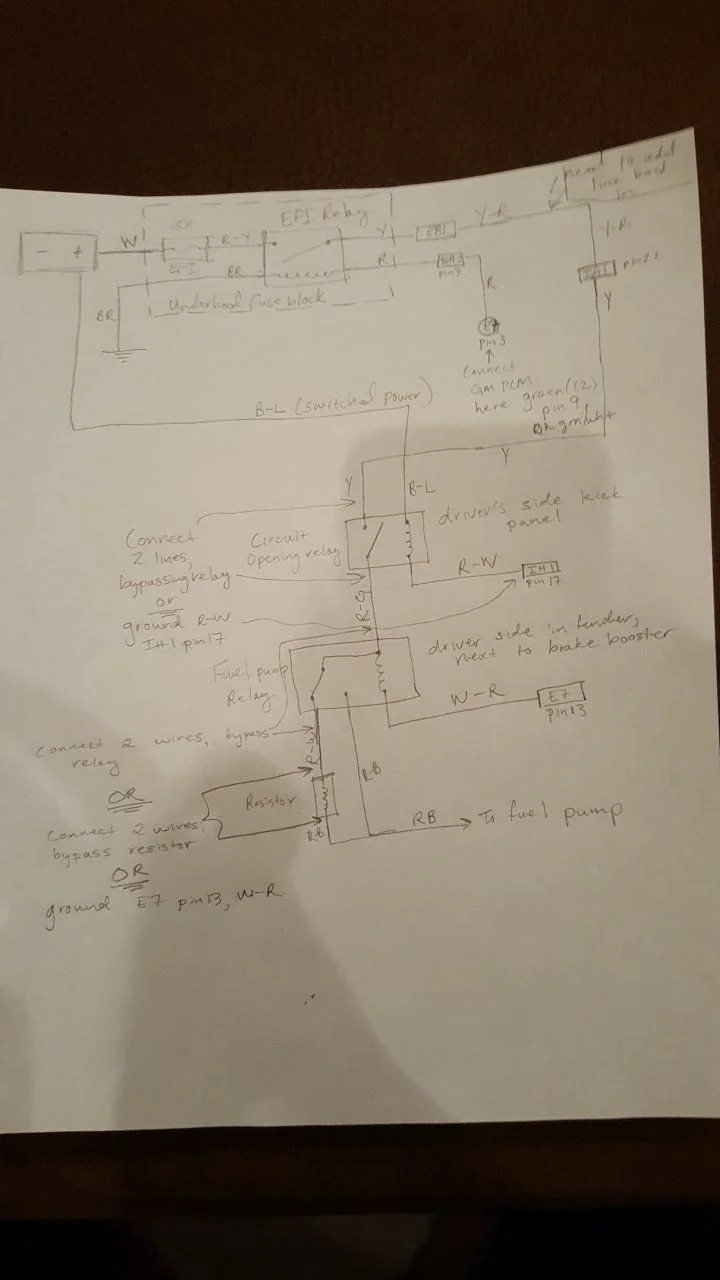 need to add
line back
in
EFI Relay
15A
EFI
- +
W
R-Y
Y
EB1
Y-R
Y-R
pin 22
Y
BR
R
pin 7
R
BR
Underhood Fuse block
E7
pin 3
Connect
GM PCM
here green (C2)
pin 9,
Dk grn/wht
B-L (switched power)
Y
Y
B-L
driver's side kick
panel
Connect
2 lines,
bypassing relay
or
ground R-W
IH1 pin 17
Circuit
Opening relay
R-W
IH1
pin 17
R-G
Fuel pump
Relay
driver side in fender,
next to brake booster
W-R
E7
pin 13
Connect 2 wires, bypass
relay
OR
Connect 2 wires,
bypass resistor
OR
ground E7 pin 13, W-R
R-W
Resistor
RB
RB
RB
To fuel pump